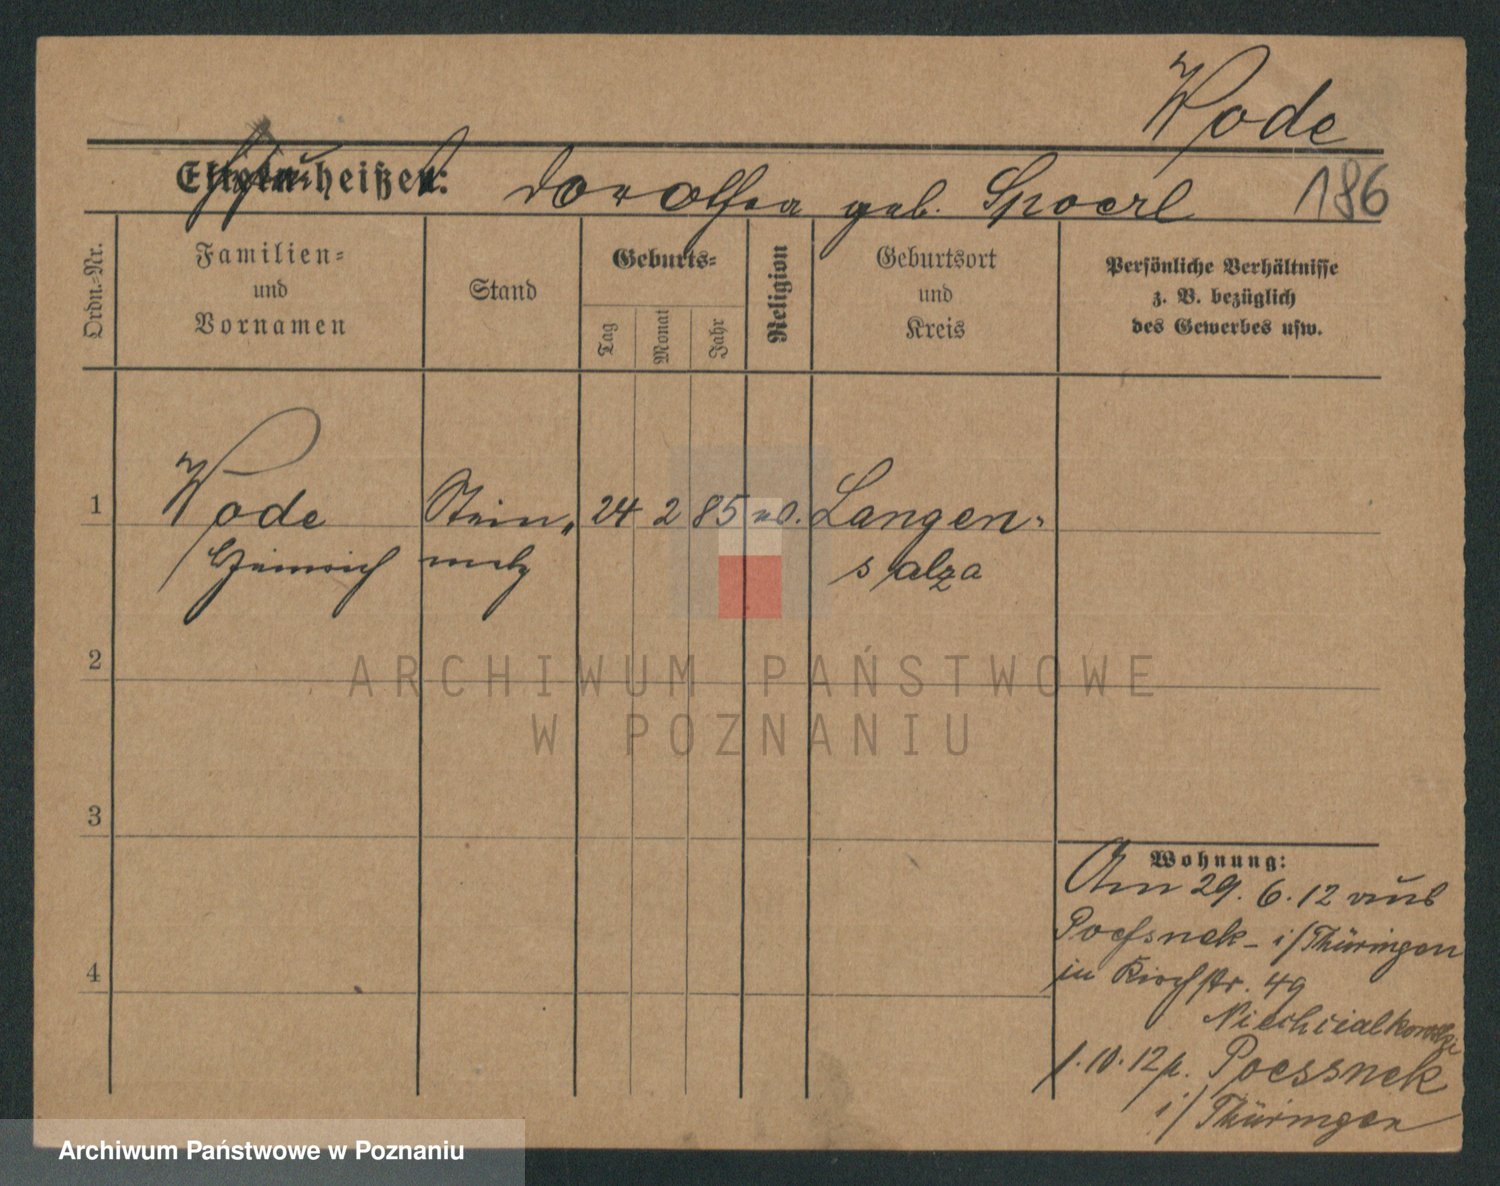 Wode
Eltern heißen: Dorothea geb. Spoerl 186
Ordn.-Nr.
Familien=
und
Vornamen
Stand
Geburts=
Tag
Monat
Jahr
Religion
Geburtsort
und
Kreis
Persönliche Verhältnisse
z. B. bezüglich
des Gewerbes usw.
1 Wode Stein„ 24 2 85 ev. Langen„
Heinrich metz salza
2
ARCHIWUM PAŃSTWOWE
W POZNANIU
3
4
Wohnung:
Am 29. 6. 12 aus
Poessnek i/Thüringen
in Kirchstr. 49
1. 10. 12 p. Poessnek
i/Thüringen
Archiwum Państwowe w Poznaniu